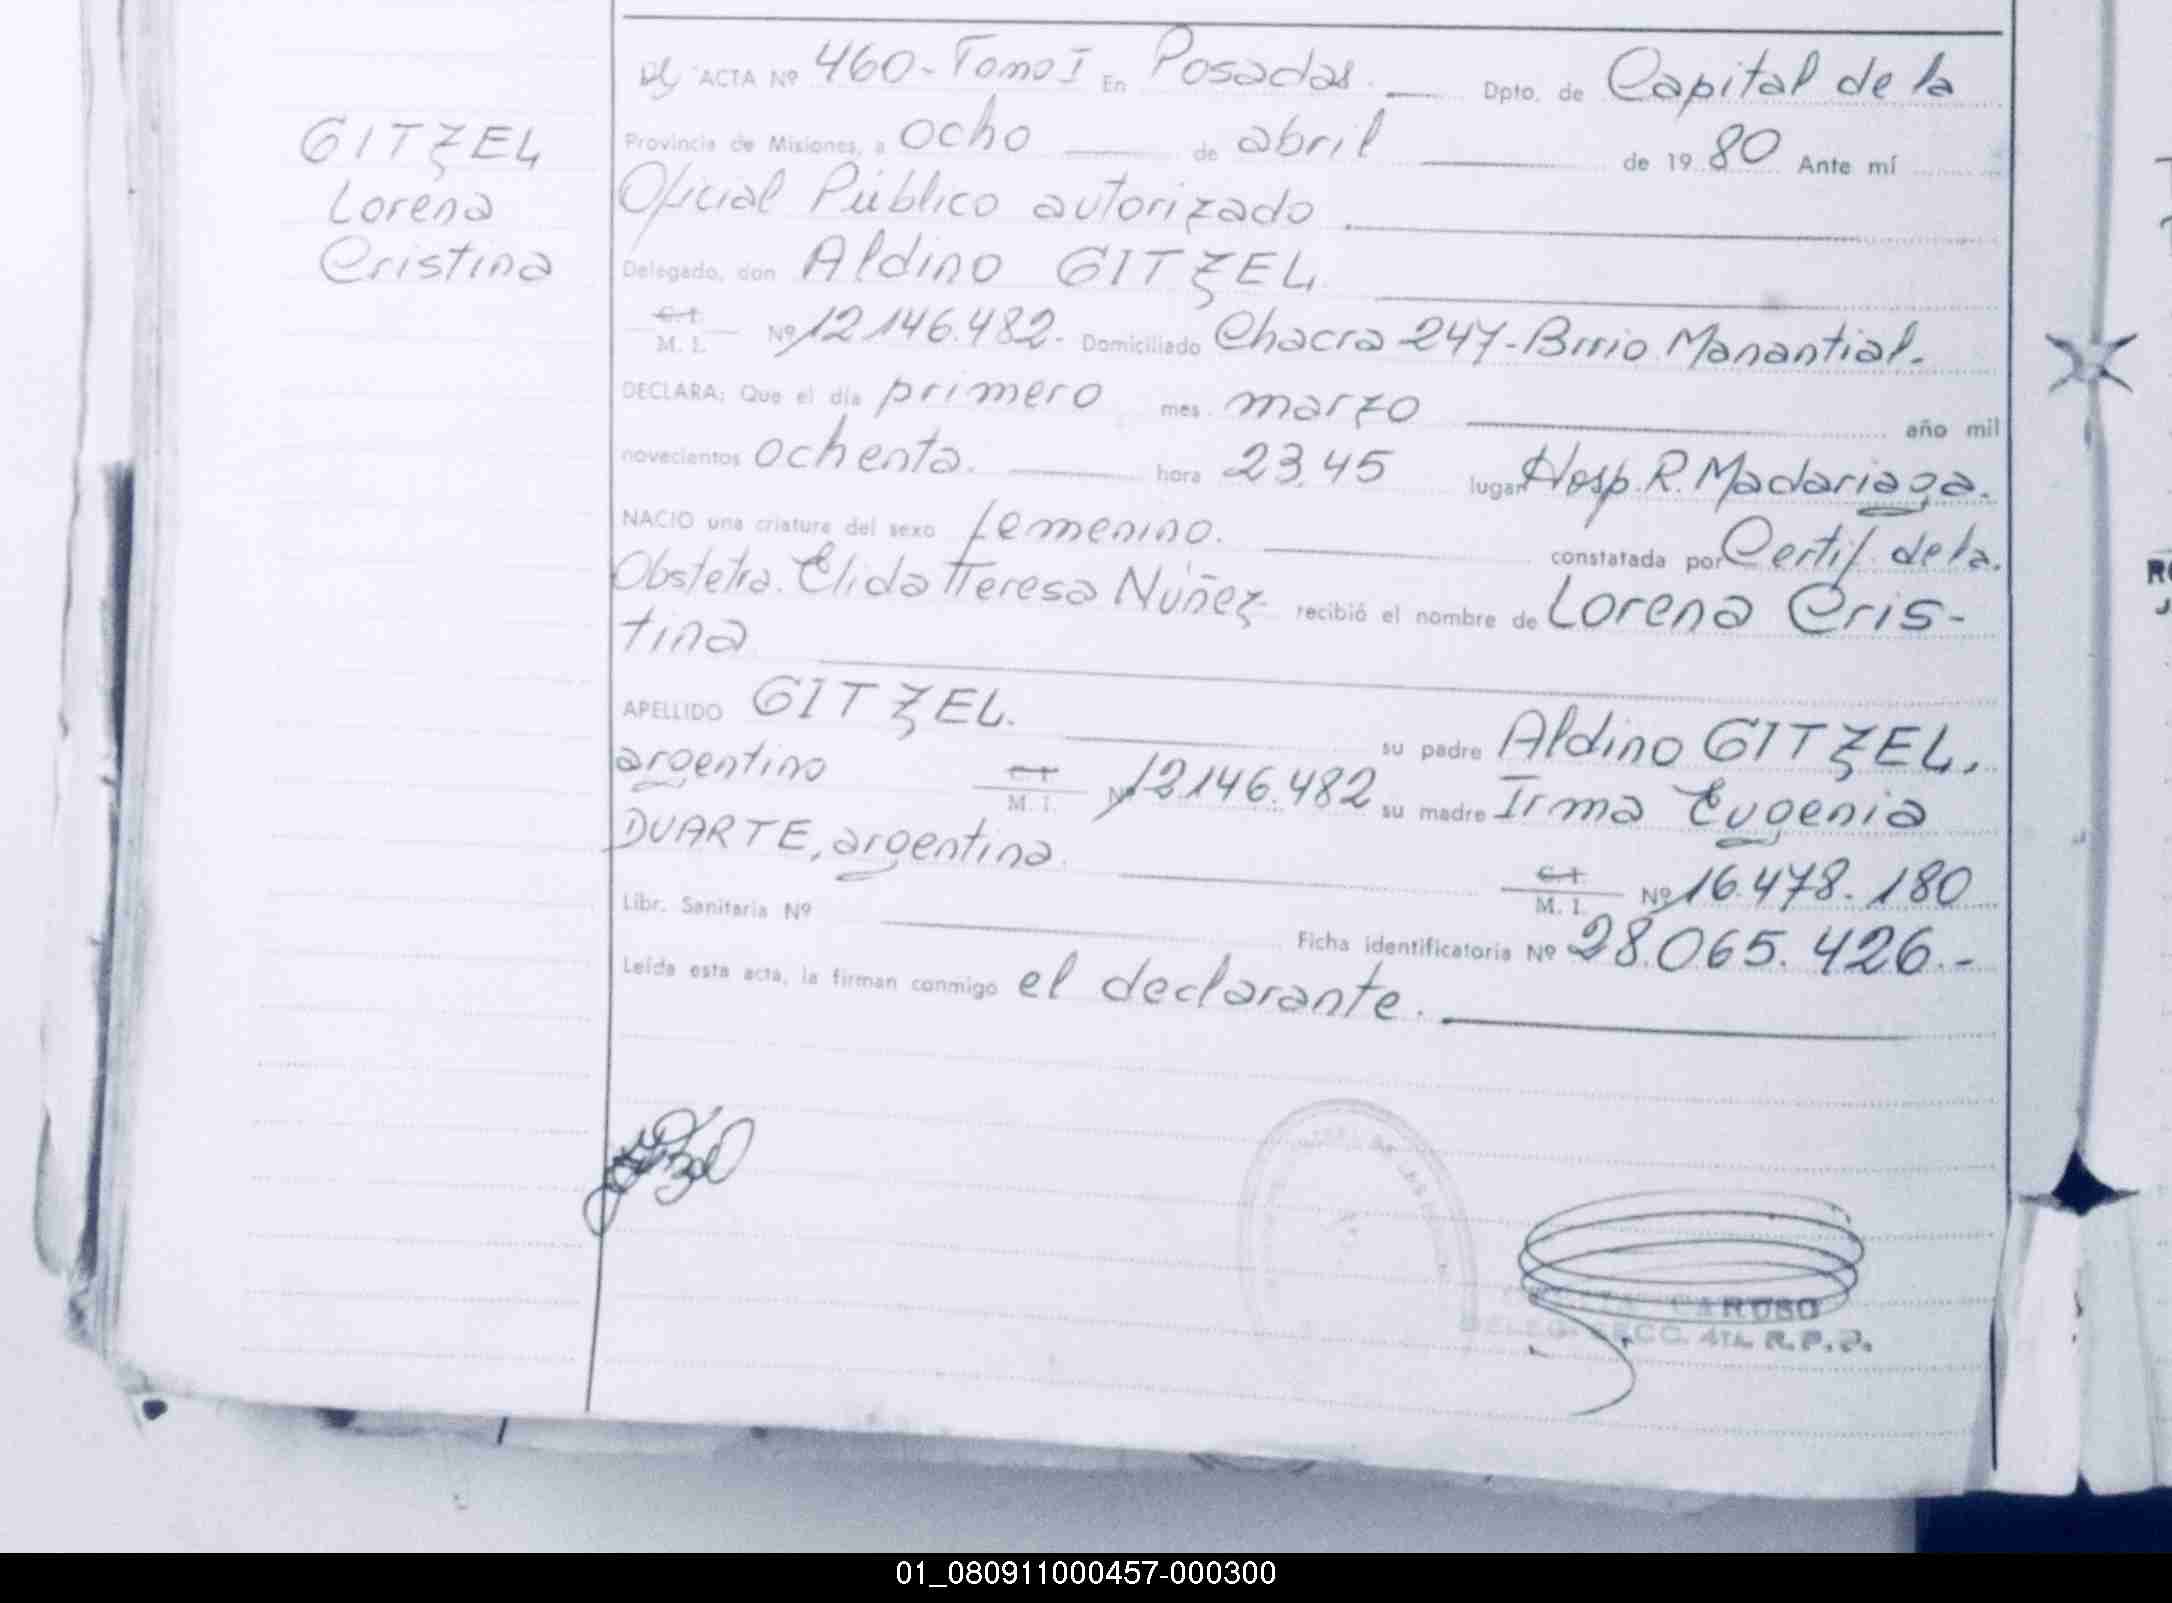 ACTA Nº 460-Tomo I En Posadas. Dpto. de Capital de la
GITZEL
Lorena
Cristina
Provincia de Misiones, a ocho de abril de 1980 Ante mí
Oficial Público autorizado
Delegado, don Aldino GITZEL
C.I.
M. I. Nº 12.146.482. Domiciliado Chacra 247-Brrio Manantial.
DECLARA: Que el día primero mes marzo año mil
novecientos ochenta. hora 23.45 lugar Hosp. R. Madariaga.
NACIO una criatura del sexo femenino. constatada por Certif. de la.
Obstetra. Elida Teresa Núñez recibió el nombre de Lorena Cris-
tina
APELLIDO GITZEL. su padre Aldino GITZEL,
argentino C.I. M. I. Nº 12146.482 su madre Irma Eugenia
DUARTE, argentina. C.I. M. I. Nº 16.478.180
Libr. Sanitaria Nº Ficha identificatoria Nº 28.065.426.-
Leída esta acta, la firman conmigo el declarante.
CARUSO
DELEG. SECC. 4ta. R.P.P.
01_080911000457-000300